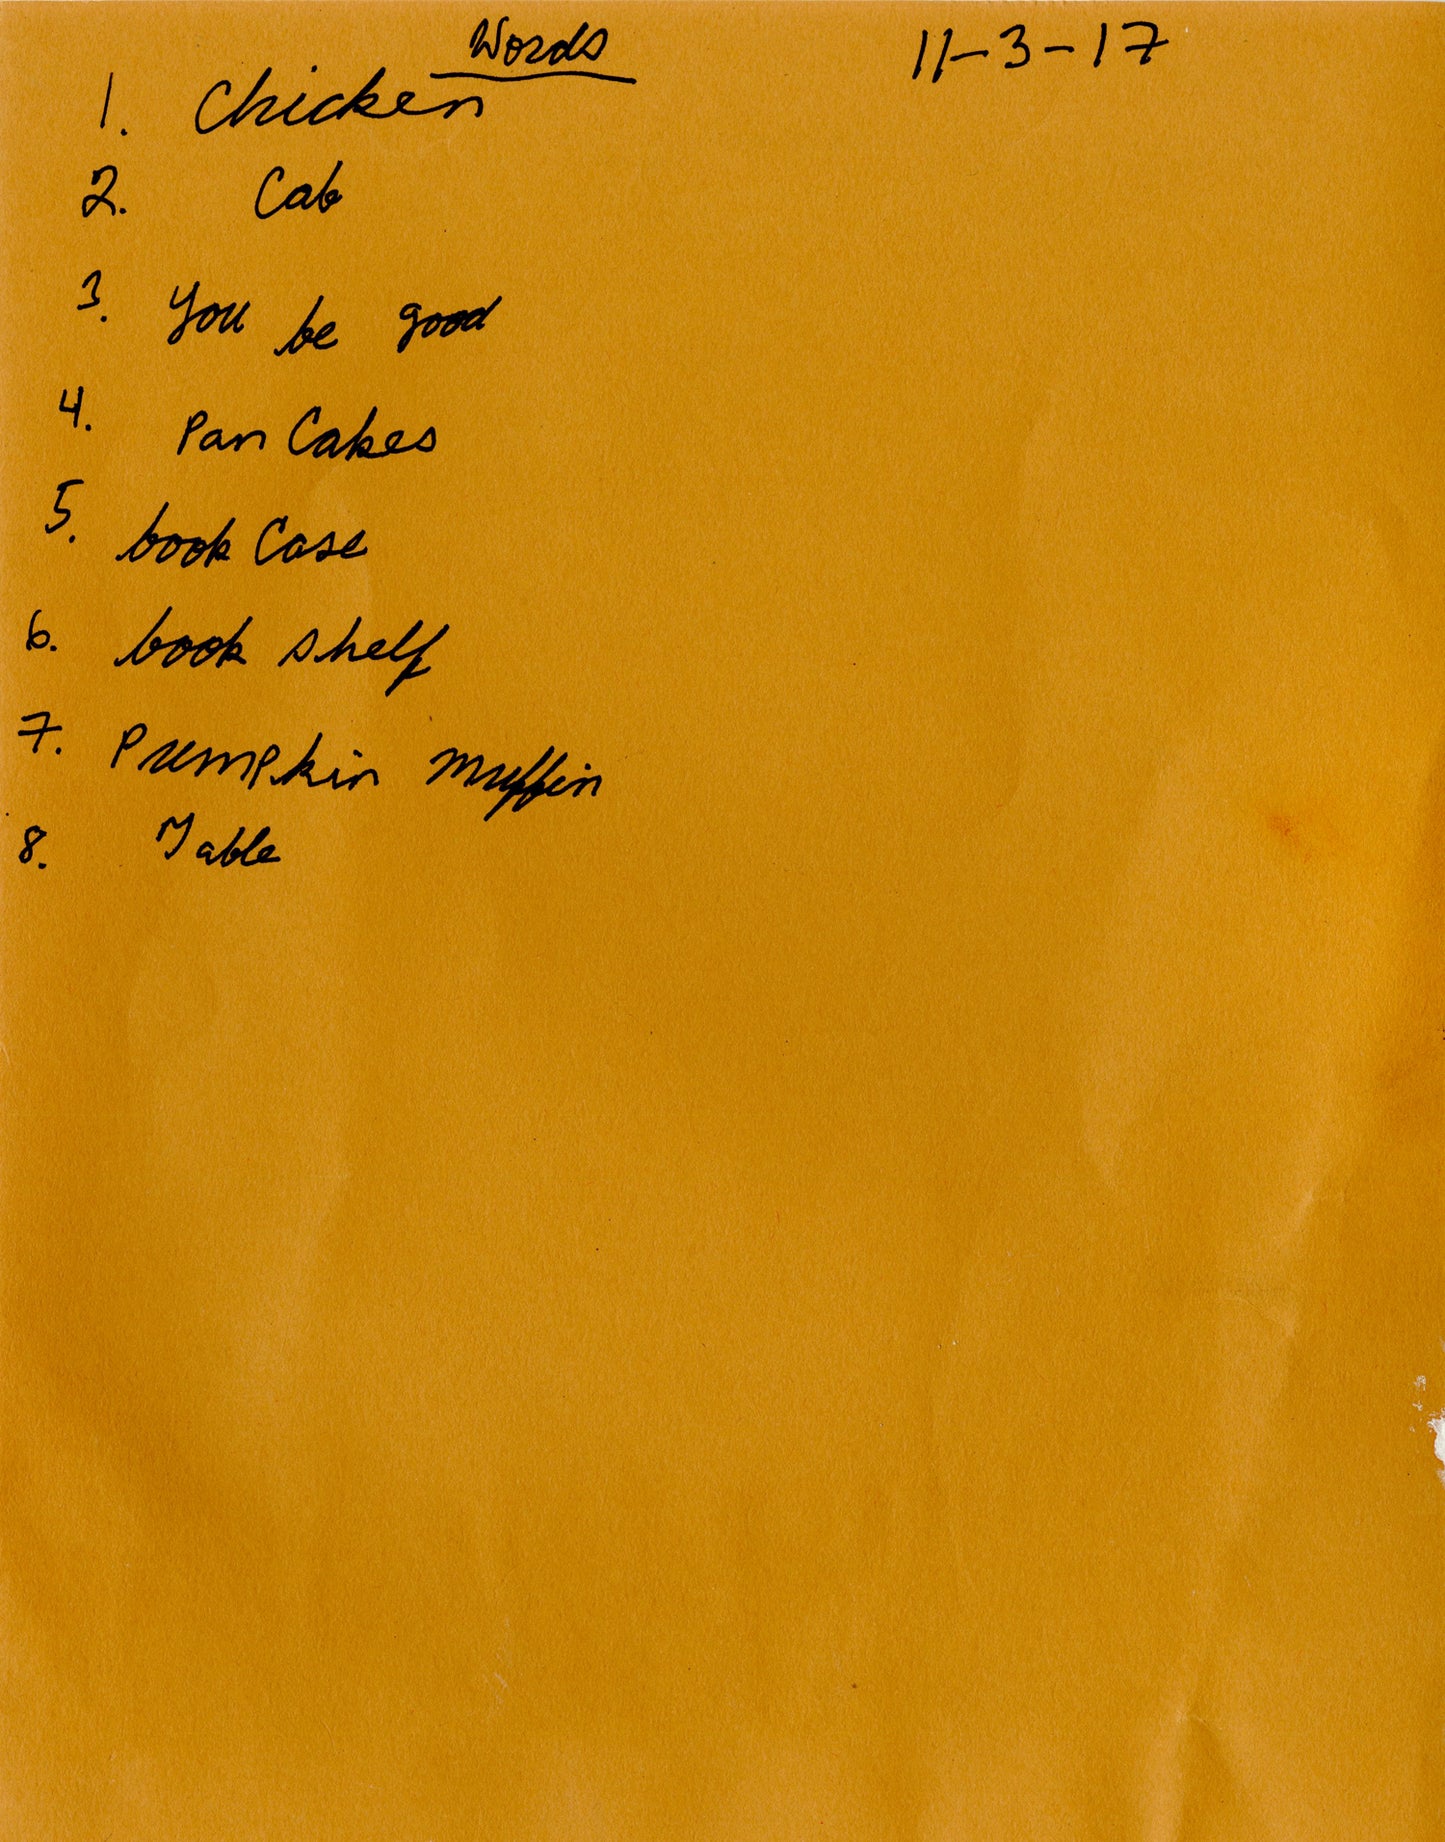 Words 11-3-17
1. Chicken
2. Cab
3. You be good
4. Pan Cakes
5. book Case
6. book shelf
7. Pumpkin muffin
8. Table